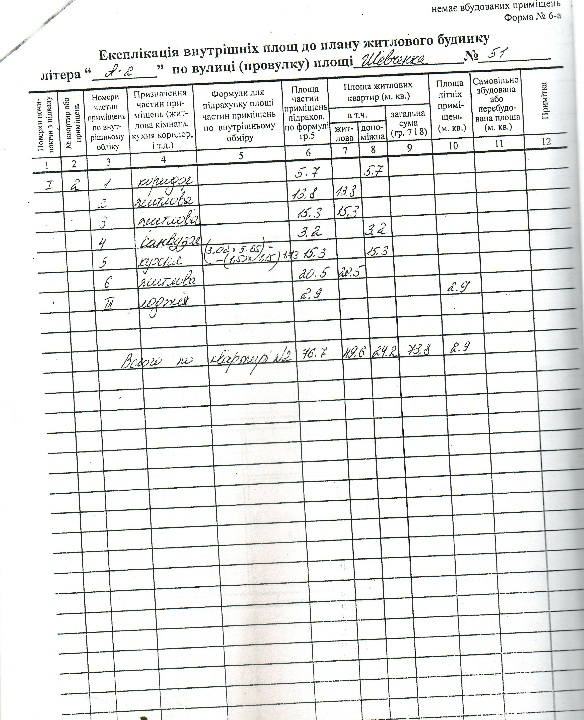 немає вбудованих приміщень
Форма № 6-а
Експлікація внутрішніх площ до плану житлового будинку
літера “ А-2 ” по вулиці (провулку) площі Шевченка № 51
Номери частин приміщень по внутрішньому обліку
Призначення частин приміщень (житлова кімната, кухня коридор, і т.д.)
Формули для підрахунку площі частин приміщень по внутрішньому обміру
Площа частин приміщень підрахов. по формулі гр.5
Площа житлових квартир (м. кв.)
в т.ч.
житлова
допоміжна
загальна сума (гр. 7 і 8)
Площа літніх приміщень (м. кв.)
Самовільно збудована або перебудована площа (м. кв.)
Примітка
1 2 3 4 5 6 7 8 9 10 11 12
І 2 1 коридор 5.7 5.7
2 житлова 13.8 13.8
3 житлова 15.3 15.3
4 санвузол 3.2 3.2
5 кухня 15.3 15.3
6 житлова 20.5 20.5
ІІІ лоджія 2.9 2.9
Всього по квартирі №2 76.7 49.6 24.2 73.8 2.9